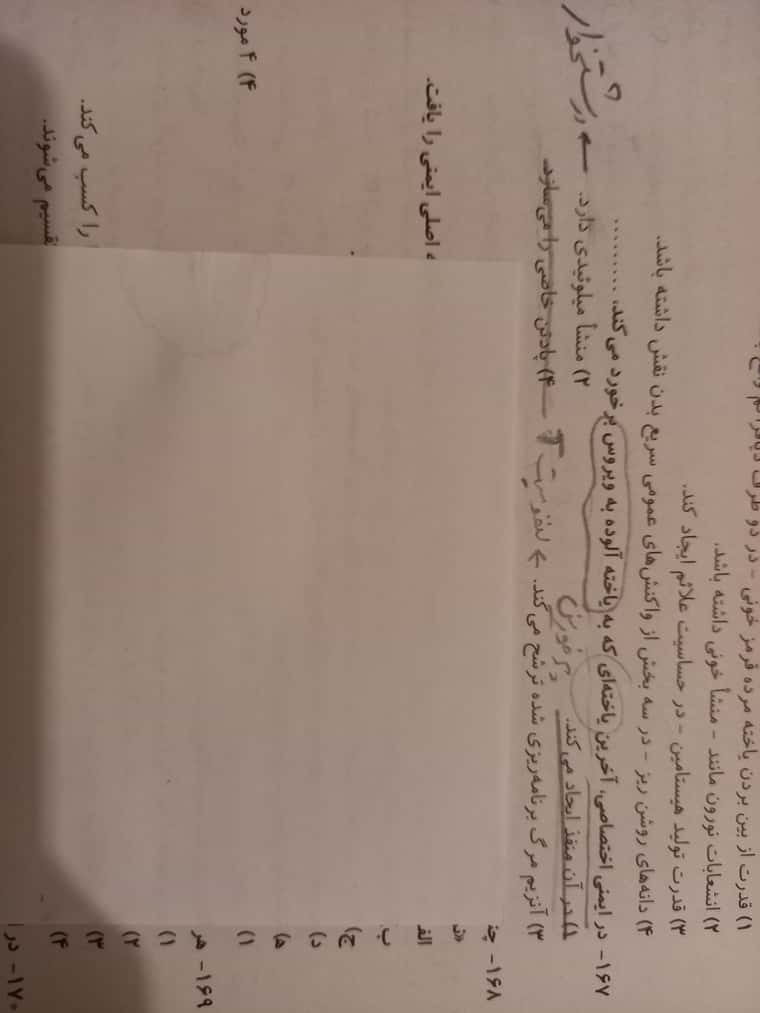 ۱) قدرت از بین بردن یاخته مرده قرمز خونی - در دو طرف دیافراگم
۲) انشعابات نورون مانند - منشأ خونی داشته باشد.
۳) قدرت تولید هیستامین - در حساسیت علائم ایجاد کند.
۴) دانه‌های روشن ریز - در سه بخش از واکنش‌های عمومی سریع بدن نقش داشته باشد.
۱۶۷- در ایمنی اختصاصی، آخرین یاخته‌ای که به یاخته آلوده به ویروس برخورد می‌کند، .........
۱) در آن منفذ ایجاد می‌کند. پرفورین ۲) منشأ میلوئیدی دارد. ← درشتخوار
۳) آنزیم مرگ برنامه‌ریزی شده ترشح می‌کند. ← لنفوسیت T ۴) پادتن خاصی را می‌سازد.
۱۶۸-
اصلی ایمنی را یافت.
الف
ب
ج)
د)
ه)
۱) ۴) ۴ مورد
۱۶۹- هر
۱)
۲)
۳) را کسب می‌کند.
۴) تقسیم می‌شوند.
۱۷۰- در